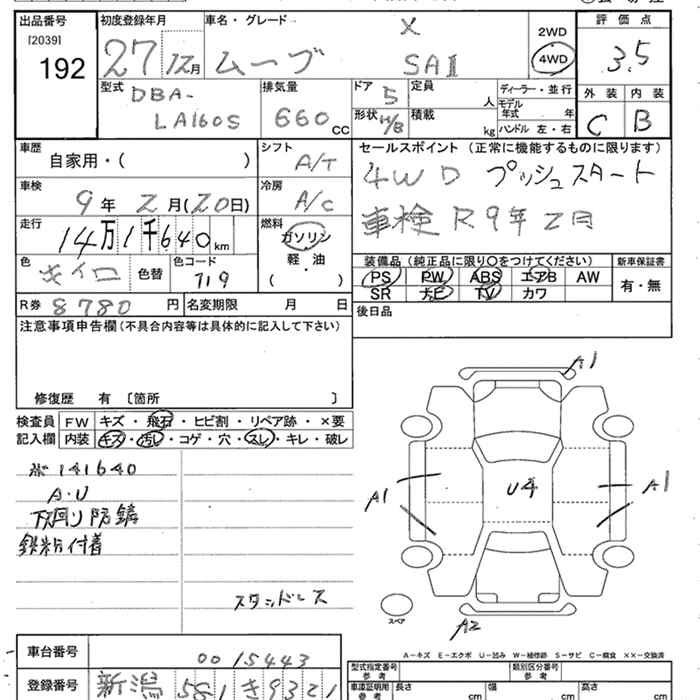 出品番号
[2039]
192
初度登録年月
27 年 12月
車名・グレード
ムーブ X SAⅡ
2WD
4WD
評価点
3.5
型式
DBA-
LA160S
排気量
660 cc
ドア 5
形状 H/B
定員 人
積載 kg
ディーラー・並行
モデル年式 年
ハンドル 左・右
外装 内装
C B
車歴
自家用・( )
シフト
A/T
車検
9年 2月(20日)
冷房
A/C
走行
14万1千640km
燃料
ガソリン
軽・油
( )
色 キイロ 色替
色コード
719
R券 8780 円
名変期限 月 日
セールスポイント(正常に機能するものに限ります)
4WD プッシュスタート
車検R9年2月
装備品(純正品に限り○をつけてください)
PS PW ABS エアB AW
SR ナビ TV カワ
新車保証書
有・無
後日品
注意事項申告欄(不具合内容等は具体的に記入して下さい)
修復歴 有 〔箇所 〕
検査員記入欄
FW キズ・飛石・ヒビ割・リペア跡・×要
内装 キズ・汚レ・コゲ・穴・スレ・キレ・破レ
141640
A・U
下回り防錆
鉄粉付着
スタッドレス
A1
A1
A1
U4
A2
スペア
A-キズ E-エクボ U-凹み W-補修跡 S-サビ C-腐食 XX-交換済
車台番号
0015443
登録番号
新潟 581 き 9321
型式指定番号
参考
類別区分番号
参考
車庫証明用
参考
長さ cm
幅 cm
高さ cm